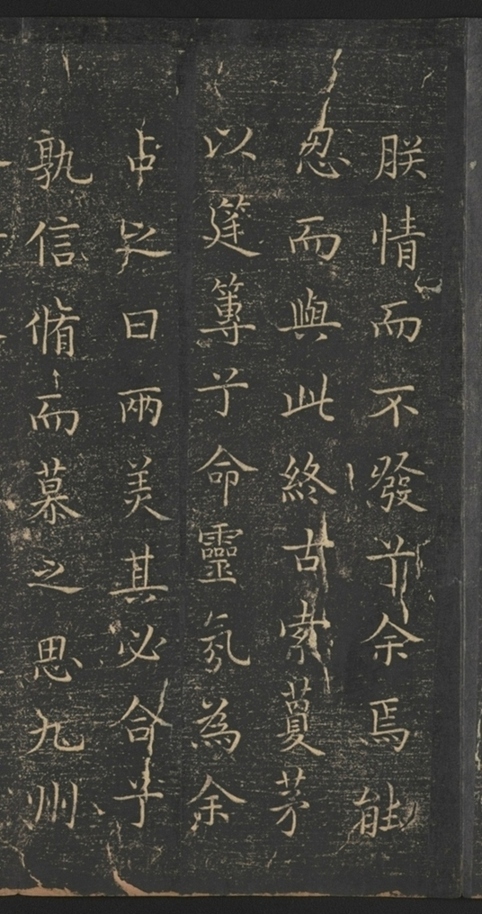 朕情而不發兮余焉能
忍而與此終古索藑茅
以筳篿兮命靈氛為余
占之曰兩美其必合兮
孰信脩而慕之思九州